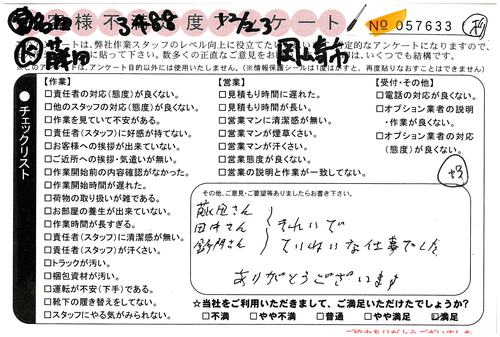 3488 12/23
様 不 度 ケート
No 057633
藤田
岡崎市
ートは、弊社作業スタッフのレベル向上に役立てたい
定的なアンケートになりますので、
に貼って下さい。数多くの正直なご意見をお
は、いくつでも結構です。
※このアンケートは、アンケート目的以外には使用いたしません。
チェックリスト
【作業】
□責任者の対応(態度)が良くない。
□他のスタッフの対応(態度)が良くない。
□作業を見ていて不安がある。
□責任者(スタッフ)に好感が持てない。
□お客様への挨拶が出来ていない。
□ご近所への挨拶・気遣いが無い。
□作業開始前の内容確認がなかった。
□作業開始時間が遅れた。
□荷物の取り扱いが雑である。
□お部屋の養生が出来ていない。
□作業時間が長すぎる。
□責任者(スタッフ)に清潔感が無い。
□責任者(スタッフ)が汗くさい。
□トラックが汚い。
□梱包資材が汚い。
□運転が不安(下手)である。
□靴下の履き替えをしてない。
□スタッフにやる気がみられない。
【営業】
□見積もり時間に遅れた。
□見積もり時間が長い。
□営業マンに清潔感が無い。
□営業マンが煙草くさい。
□営業マンが汗くさい。
□営業態度が良くない。
□営業の説明と作業が一致してない。
【受付・その他】
□電話の対応が良くない。
□オプション業者の説明
・作業が良くない。
□オプション業者の対応
(態度)が良くない。
その他、ご意見・ご要望等ありましたらお書き下さい。
藤田さん
田中さん
きれいで
ていねいな仕事でした
ありがとうございます
☆当社をご利用いただきまして、ご満足いただけたでしょうか?
□不満 □やや不満 □普通 □やや満足 ☑満足
ご協力ありがとうございました